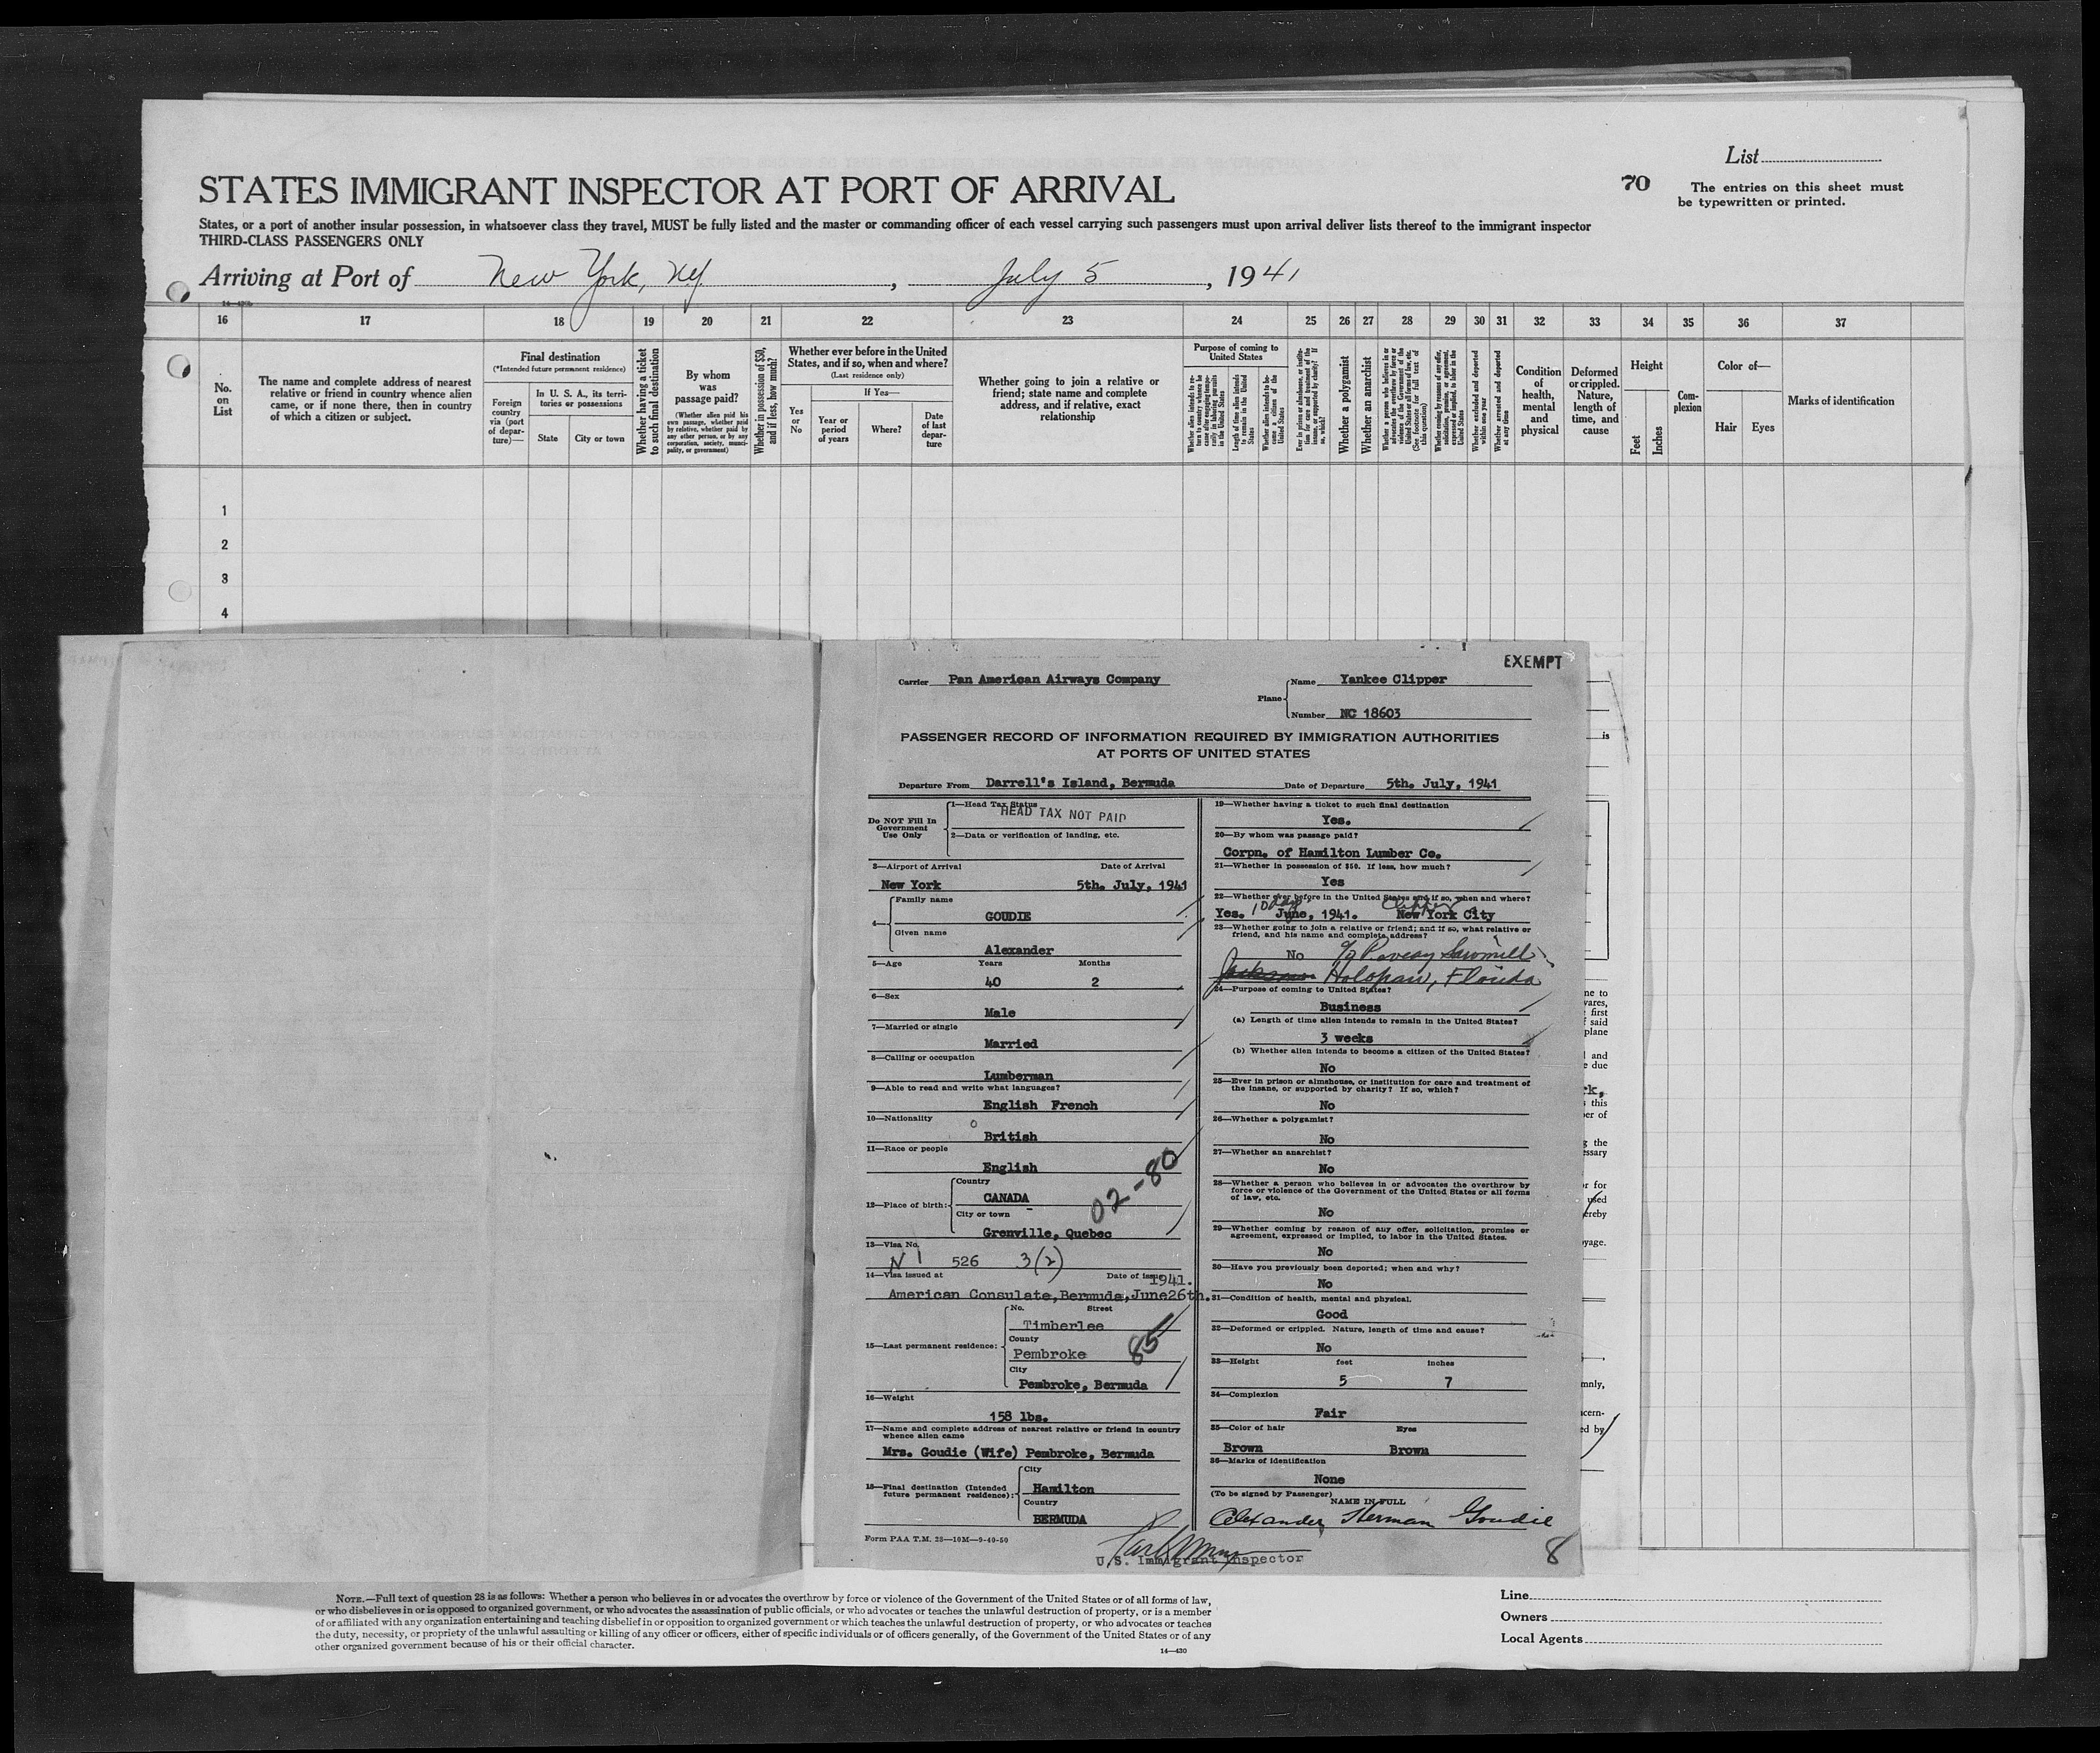 List
70
The entries on this sheet must
be typewritten or printed.
STATES IMMIGRANT INSPECTOR AT PORT OF ARRIVAL
States, or a port of another insular possession, in whatsoever class they travel, MUST be fully listed and the master or commanding officer of each vessel carrying such passengers must upon arrival deliver lists thereof to the immigrant inspector
THIRD-CLASS PASSENGERS ONLY
Arriving at Port of New York, NY. , July 5 , 1941
16 17 18 19 20 21 22 23 24 25 26 27 28 29 30 31 32 33 34 35 36 37
No.
on
List
The name and complete address of nearest
relative or friend in country whence alien
came, or if none there, then in country
of which a citizen or subject.
Final destination
(*Intended future permanent residence)
Foreign
country
via (port
of depar-
ture)—
In U. S. A., its terri-
tories or possessions
State
City or town
Whether having a ticket
to such final destination
By whom
was
passage paid?
(Whether alien paid his
own passage, whether paid
by relative, whether paid by
any other person, or by any
corporation, society, munici-
pality, or government)
Whether in possession of $50,
and if less, how much?
Whether ever before in the United
States, and if so, when and where?
(Last residence only)
Yes
or
No
If Yes—
Year or
period
of years
Where?
Date
of last
depar-
ture
Whether going to join a relative or
friend; state name and complete
address, and if relative, exact
relationship
Purpose of coming to
United States
Whether alien intends to re-
turn to country whence he
came after engaging tempo-
rarily in laboring pursuits
in the United States
Length of time alien intends
to remain in the United
States
Whether alien intends to be-
come a citizen of the
United States
Ever in prison or almshouse, or institu-
tion for care and treatment of the
insane, or supported by charity? If
so, which?
Whether a polygamist
Whether an anarchist
Whether a person who believes in or
advocates the overthrow by force or
violence of the Government of the
United States or all forms of law, etc.
(See footnote for full text of
this question)
Whether coming by reason of any offer,
solicitation, promise, or agreement,
expressed or implied, to labor in the
United States
Whether excluded and deported
within one year
Whether arrested and deported
at any time
Condition
of
health,
mental
and
physical
Deformed
or crippled.
Nature,
length of
time, and
cause
Height
Feet
Inches
Com-
plexion
Color of—
Hair
Eyes
Marks of identification
1
2
3
4
EXEMPT
Carrier Pan American Airways Company
Plane
Name Yankee Clipper
Number NC 18603
PASSENGER RECORD OF INFORMATION REQUIRED BY IMMIGRATION AUTHORITIES
AT PORTS OF UNITED STATES
Departure From Darrell's Island, Bermuda Date of Departure 5th. July, 1941
Do NOT Fill In
Government
Use Only
1—Head Tax Status
HEAD TAX NOT PAID
2—Data or verification of landing, etc.
3—Airport of Arrival Date of Arrival
New York 5th. July, 1941
4—
Family name
GOUDIE
Given name
Alexander
5—Age Years Months
40 2
6—Sex
Male
7—Married or single
Married
8—Calling or occupation
Lumberman
9—Able to read and write what languages?
English French
10—Nationality
British
11—Race or people
English
12—Place of birth:
Country
CANADA
City or town
Grenville, Quebec
02-80
13—Visa No.
N I 526 3(2)
14—Visa issued at Date of issue
1941.
American Consulate, Bermuda, June 26th.
15—Last permanent residence:
No. Street
Timberlee
County
Pembroke
85
City
Pembroke, Bermuda
16—Weight
158 lbs.
17—Name and complete address of nearest relative or friend in country
whence alien came
Mrs. Goudie (Wife) Pembroke, Bermuda
18—Final destination (Intended
future permanent residence):
City
Hamilton
Country
BERMUDA
Form PAA T.M. 23—10M—9-40-50
19—Whether having a ticket to such final destination
Yes.
20—By whom was passage paid?
Corpn. of Hamilton Lumber Co.
21—Whether in possession of $50. If less, how much?
Yes
22—Whether ever before in the United States and if so, when and where?
10 days Clipper
Yes. June, 1941. New York City
23—Whether going to join a relative or friend; and if so, what relative or
friend, and his name and complete address?
No c/o Sawmill
Holopaw, Florida
24—Purpose of coming to United States?
Business
(a) Length of time alien intends to remain in the United States?
3 weeks
(b) Whether alien intends to become a citizen of the United States?
No
25—Ever in prison or almshouse, or institution for care and treatment of
the insane, or supported by charity? If so, which?
No
26—Whether a polygamist?
No
27—Whether an anarchist?
No
28—Whether a person who believes in or advocates the overthrow by
force or violence of the Government of the United States or all forms
of law, etc.
No
29—Whether coming by reason of any offer, solicitation, promise or
agreement, expressed or implied, to labor in the United States.
No
30—Have you previously been deported; when and why?
No
31—Condition of health, mental and physical.
Good
32—Deformed or crippled. Nature, length of time and cause?
No
33—Height feet inches
5 7
34—Complexion
Fair
35—Color of hair Eyes
Brown Brown
36—Marks of identification
None
(To be signed by Passenger)
NAME IN FULL
Alexander Herman Goudie
U.S. Immigrant Inspector
8
NOTE.—Full text of question 28 is as follows: Whether a person who believes in or advocates the overthrow by force or violence of the Government of the United States or of all forms of law,
or who disbelieves in or is opposed to organized government, or who advocates the assassination of public officials, or who advocates or teaches the unlawful destruction of property, or is a member
of or affiliated with any organization entertaining and teaching disbelief in or opposition to organized government or which teaches the unlawful destruction of property, or who advocates or teaches
the duty, necessity, or propriety of the unlawful assaulting or killing of any officer or officers, either of specific individuals or of officers generally, of the Government of the United States or of any
other organized government because of his or their official character.
14—430
Line
Owners
Local Agents